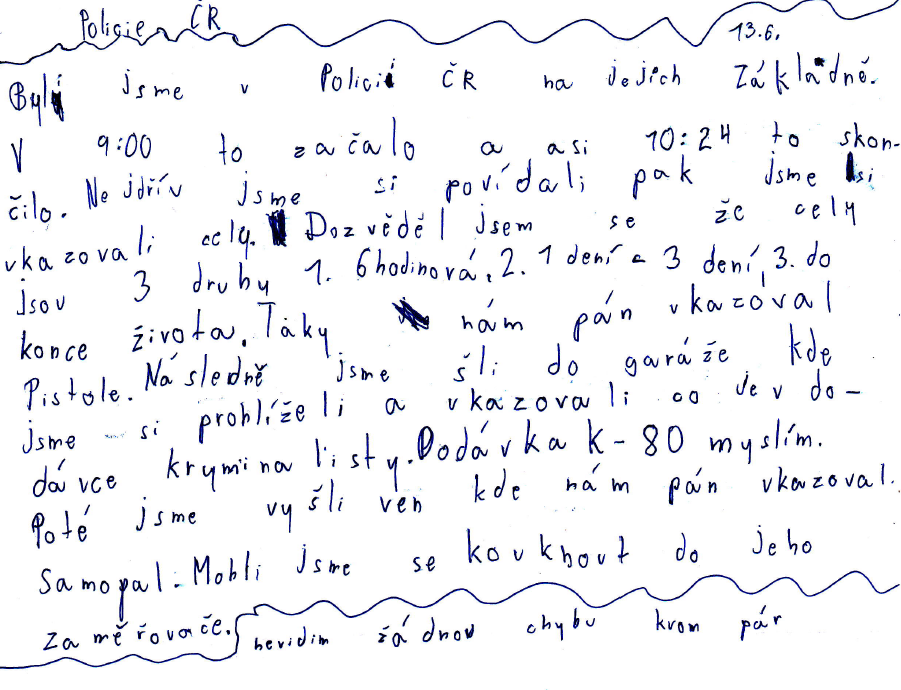 Policie ČR
13.6.
Byli jsme v Policii ČR na jejich Základně.
V 9:00 to začalo a asi 10:24 to skon-
čilo. Nejdřív jsme si povídali pak jsme si
vkazovali cely. Dozvěděl jsem se že cely
jsou 3 druhy 1. 6hodinová, 2. 1 dení a 3 dení, 3. do
konce života. Táky nám pán vkazoval
Pistole. Následně jsme šli do garáže kde
jsme si prohlíželi a vkazovali co je v do-
dávce kryminalisty. Dodávka K-80 myslím.
Poté jsme vyšli ven kde nám pán vkazoval.
Samopal. Mohli jsme se kouknout do jeho
Zaměřovače.
nevidim žádnou chybu krom pár